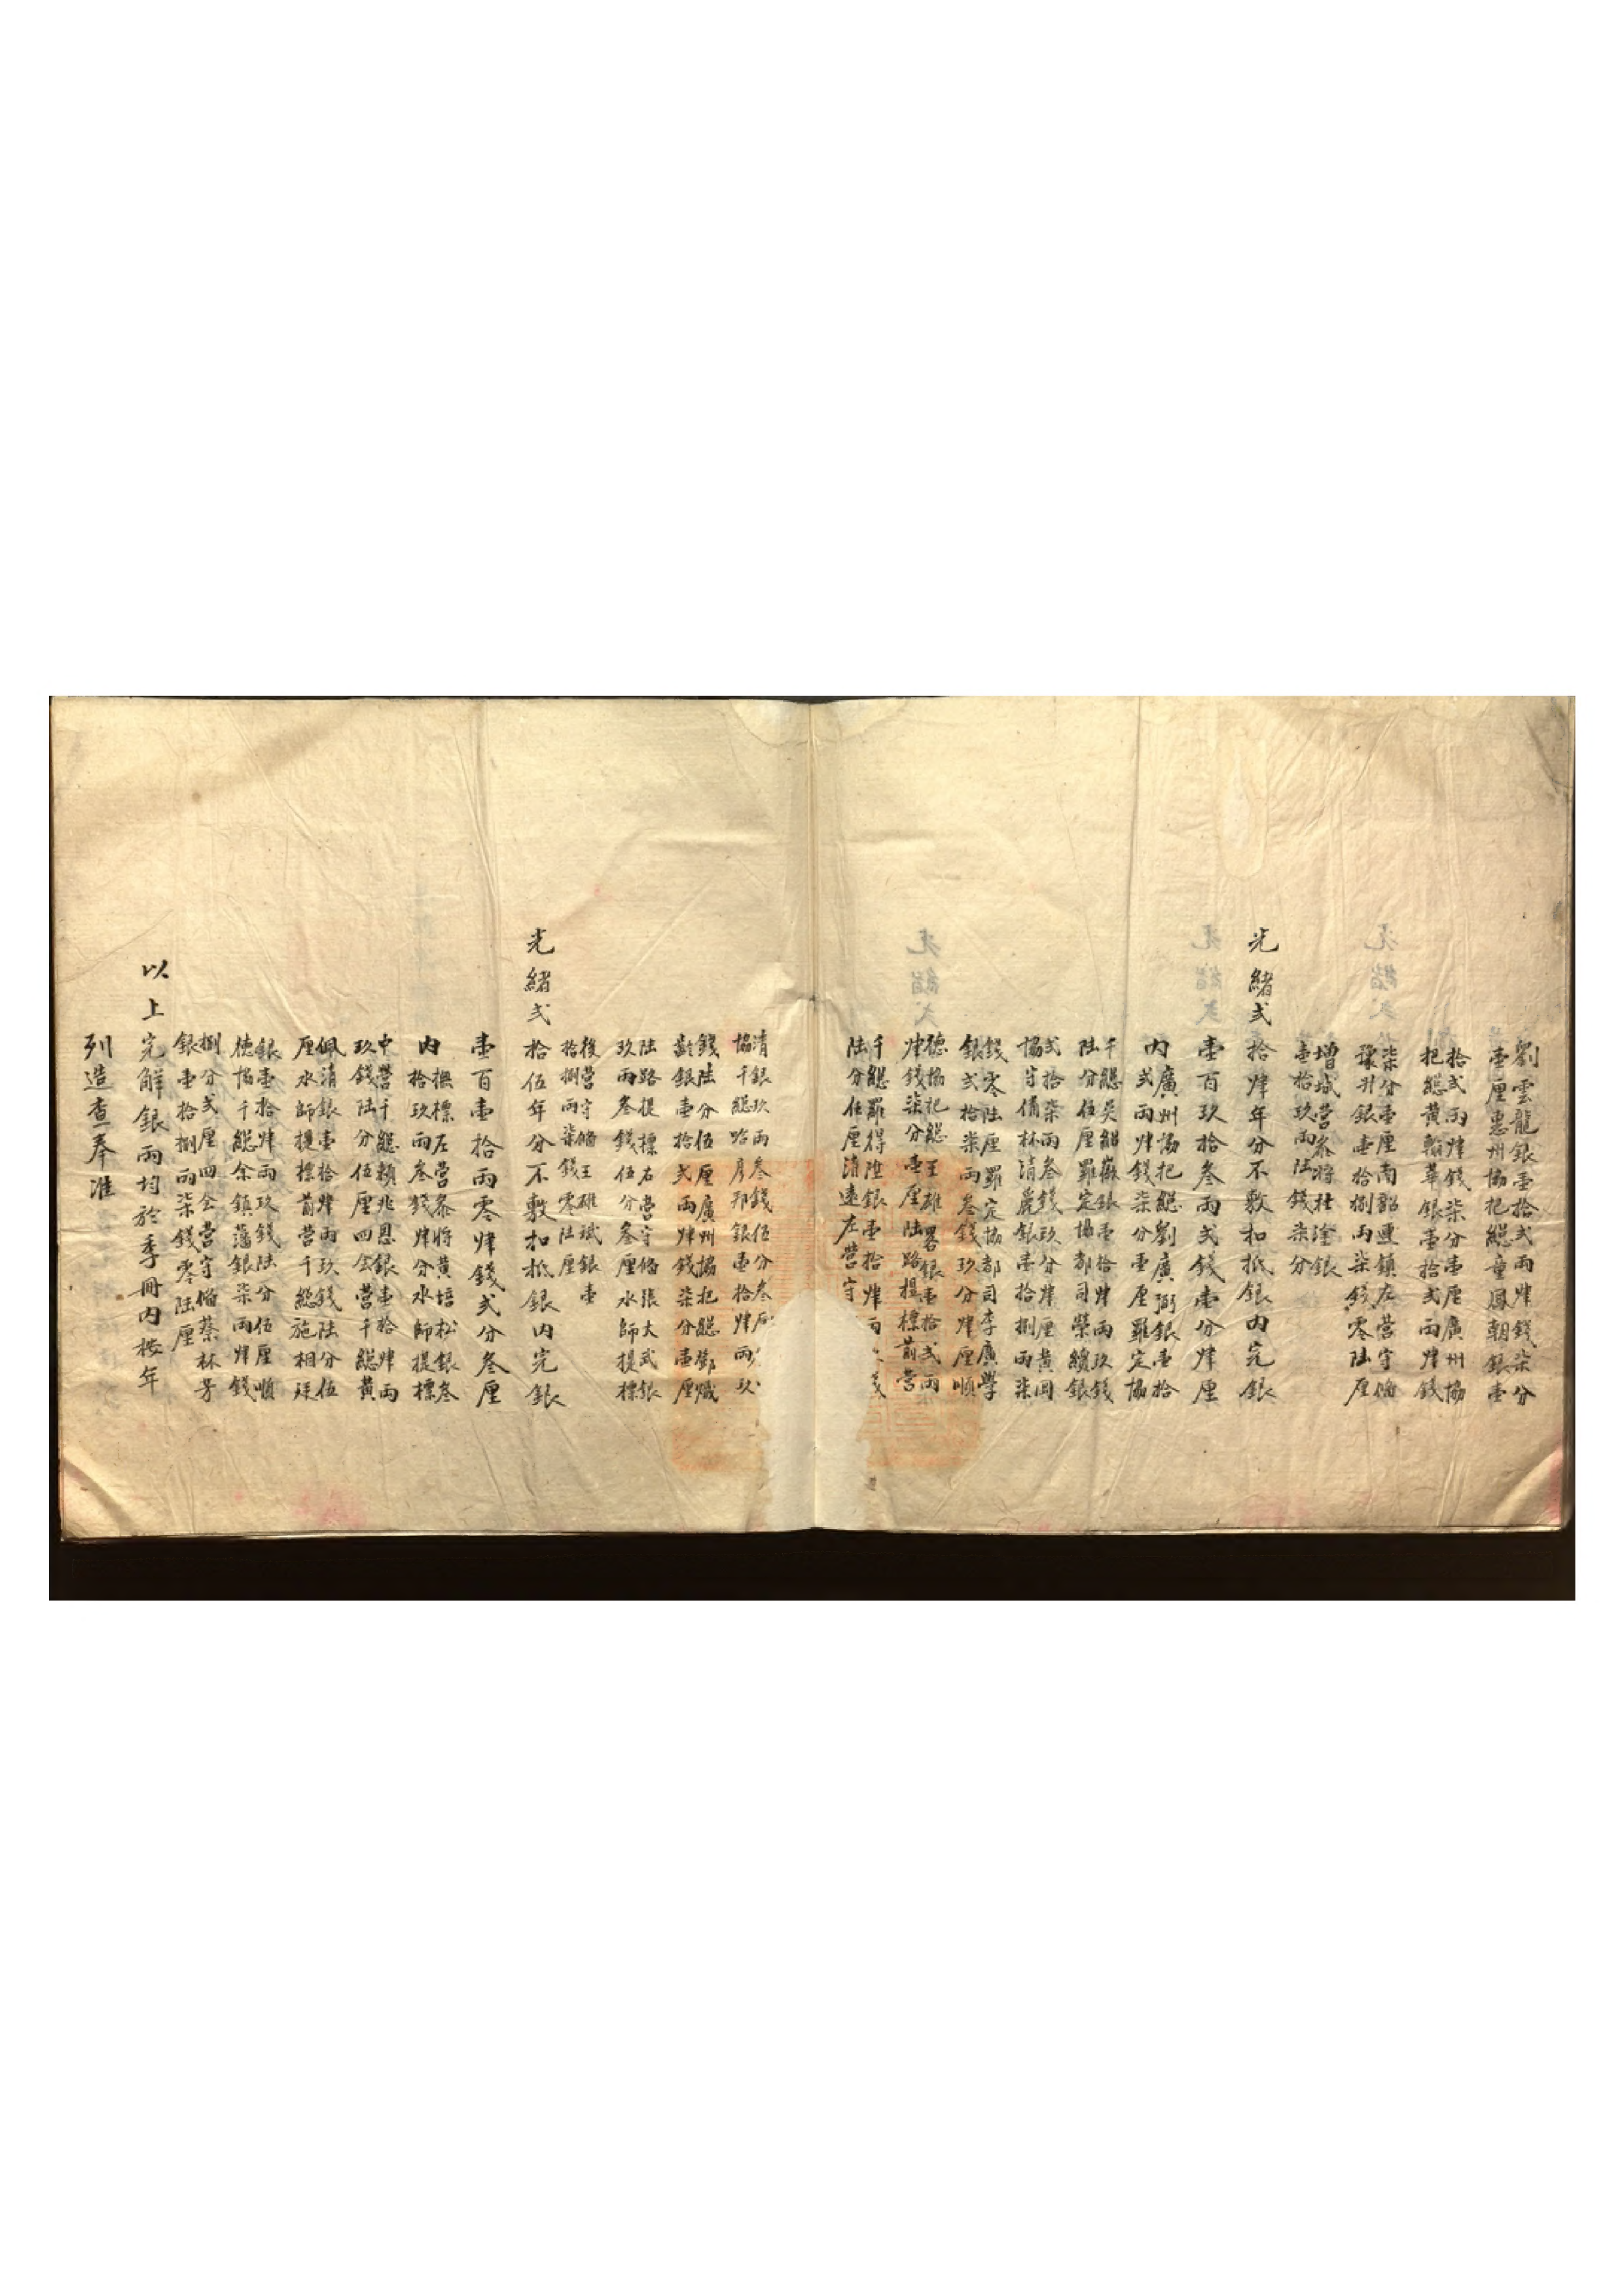 劉雲龍銀壹拾弍兩肆錢柒分
壹厘惠州協把總童鳳朝銀壹
拾弍兩肆錢柒分壹厘廣州協
把總黃翰華銀壹拾弍兩肆錢
柒分壹厘南韶連鎮左營守俻
豫升銀壹拾捌兩柒錢零陆厘
增城營叅將杜淦銀
壹拾玖兩陆錢柒分
光緒弍拾肆年分不敷扣抵銀内完銀
壹百玖拾叁兩弍錢壹分肆厘
内廣州協把總劉廣弼銀壹拾
弍兩肆錢柒分壹厘羅定協
千總吳紹嶽銀壹拾肆兩玖錢
陆分伍厘羅定協都司榮纘銀
弍拾柒兩叁錢玖分肆厘黃岡
協守俻林清麗銀壹拾捌兩柒
錢零陆厘羅定協都司李廣學
銀弍拾柒兩叁錢玖分肆厘順
德協把總王雄畧銀壹拾弍兩
肆錢柒分壹厘陆路提標前營
千總羅得陞銀壹拾肆兩
陆分伍厘清遠左營守
清銀玖兩叁錢伍分叁厘
協千總駱彦邦銀壹拾肆兩玖
錢陆分伍厘廣州協把總鄧熾
齡銀壹拾弍兩肆錢柒分壹厘
陆路提標右營守俻張大武銀
玖兩叁錢伍分叁厘水師提標
後營守俻王雄斌銀壹
拾捌兩柒錢零陆厘
光緒弍拾伍年分不敷扣抵銀内完銀
壹百壹拾兩零肆錢弍分叁厘
内撫標左營叅將黃培松銀叁
拾玖兩叁錢肆分水師提標
中營千總賴兆恩銀壹拾肆兩
玖錢陆分伍厘四会營千總黃
佩清銀壹拾肆兩玖錢陆分伍
厘水師提標前營千總施相珽
銀壹拾肆兩玖錢陆分伍厘順
德協千總余鎮藩銀柒兩肆錢
捌分弍厘四会營守俻蔡林芳
銀壹拾捌兩柒錢零陆厘
以上完解銀兩均於季冊内按年
列造查奉准